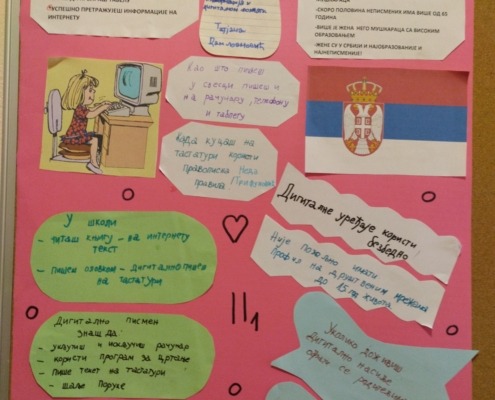 УСПЕШНО ПРЕТРАЖУЈЕШ ИНФОРМАЦИЈЕ НА
ИНТЕРНЕТУ
-СКОРО ПОЛОВИНА НЕПИСМЕНИХ ИМА ВИШЕ ОД 65
ГОДИНА
-ВИШЕ ЈЕ ЖЕНА НЕГО МУШКАРАЦА СА ВИСОКИМ
ОБРАЗОВАЊЕМ
-ЖЕНЕ СУ У СРБИЈИ И НАЈОБРАЗОВАНИЈЕ И
НАЈНЕПИСМЕНИЈЕ!
Као што пишеш
у свесци пишеш и
на рачунару, телефону
и таблету
Када куцаш на
тастатури користи
правописна
правила
Дигиталне уређаје користи
безбедно
Није пожељно имати
профил на друштвеним мрежама
до 15 год живота
У школи
- читаш книгу - на интернету
текст
- пишеш оловком - дигитално пишеш
на тастатури
II1
Дигитално писмен
знаш да:
- укључиш и искључиш рачунар
- користи програм за цртање
- пише текст на тастатури
- шаље поруке
Уколико доживиш
дигитално насиље
обрати се